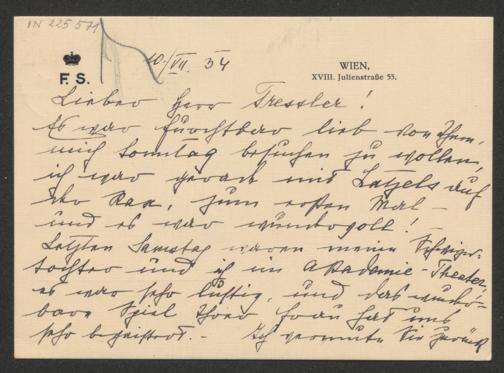 IN 225 571
F. S.
10./VII. 34
WIEN,
XVIII. Julienstraße 55.
Lieber Herr Tressler!
Es war furchtbar lieb von Ihnen,
mich Sonntag besuchen zu wollen,
ich war gerade mit Latzels auf
der Rax, zum ersten Mal –
und es war wundervoll! –
Letzten Samstag waren meine Schwieger-
tochter und ich im Akademie-Theater,
es war sehr lustig, und das wunder-
bare Spiel Ihrer Frau hat uns
sehr begeistert. – Ich vermute Sie zurück